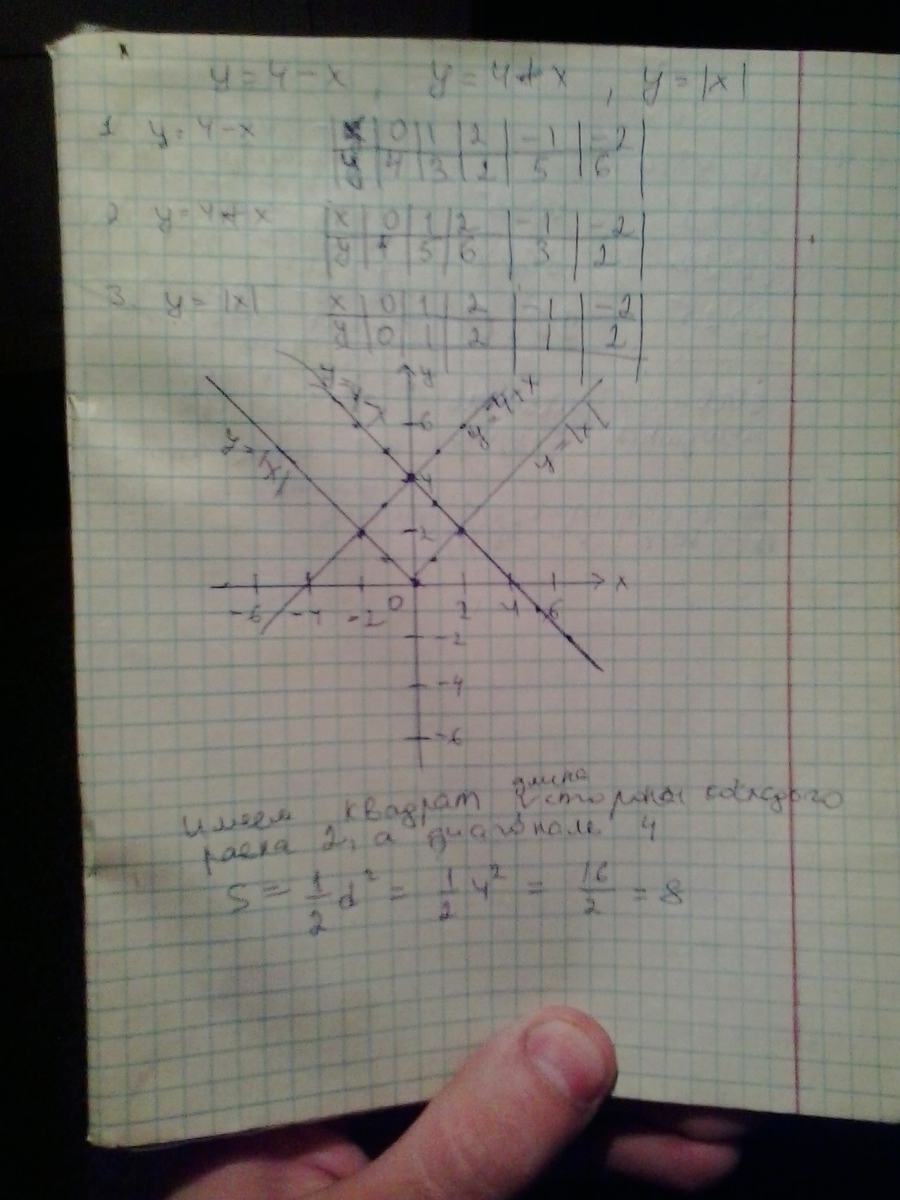 y = 4 - x , y = 4 + x , y = |x|
1 y = 4 - x
x 0 1 2 -1 -2
y 4 3 2 5 6
2 y = 4 + x
x 0 1 2 -1 -2
y 4 5 6 3 2
3. y = |x|
x 0 1 2 -1 -2
y 0 1 2 1 2
y = 4 - x
y
y = 4 + x
y = |x|
y = |x|
6
4
2
-6 -4 -2 0 2 4 6 x
-2
-4
-6
Имеем квадрат длина стороны
равна 2, а диагональ 4
S = 1/2 d² = 1/2 4² = 16/2 = 8